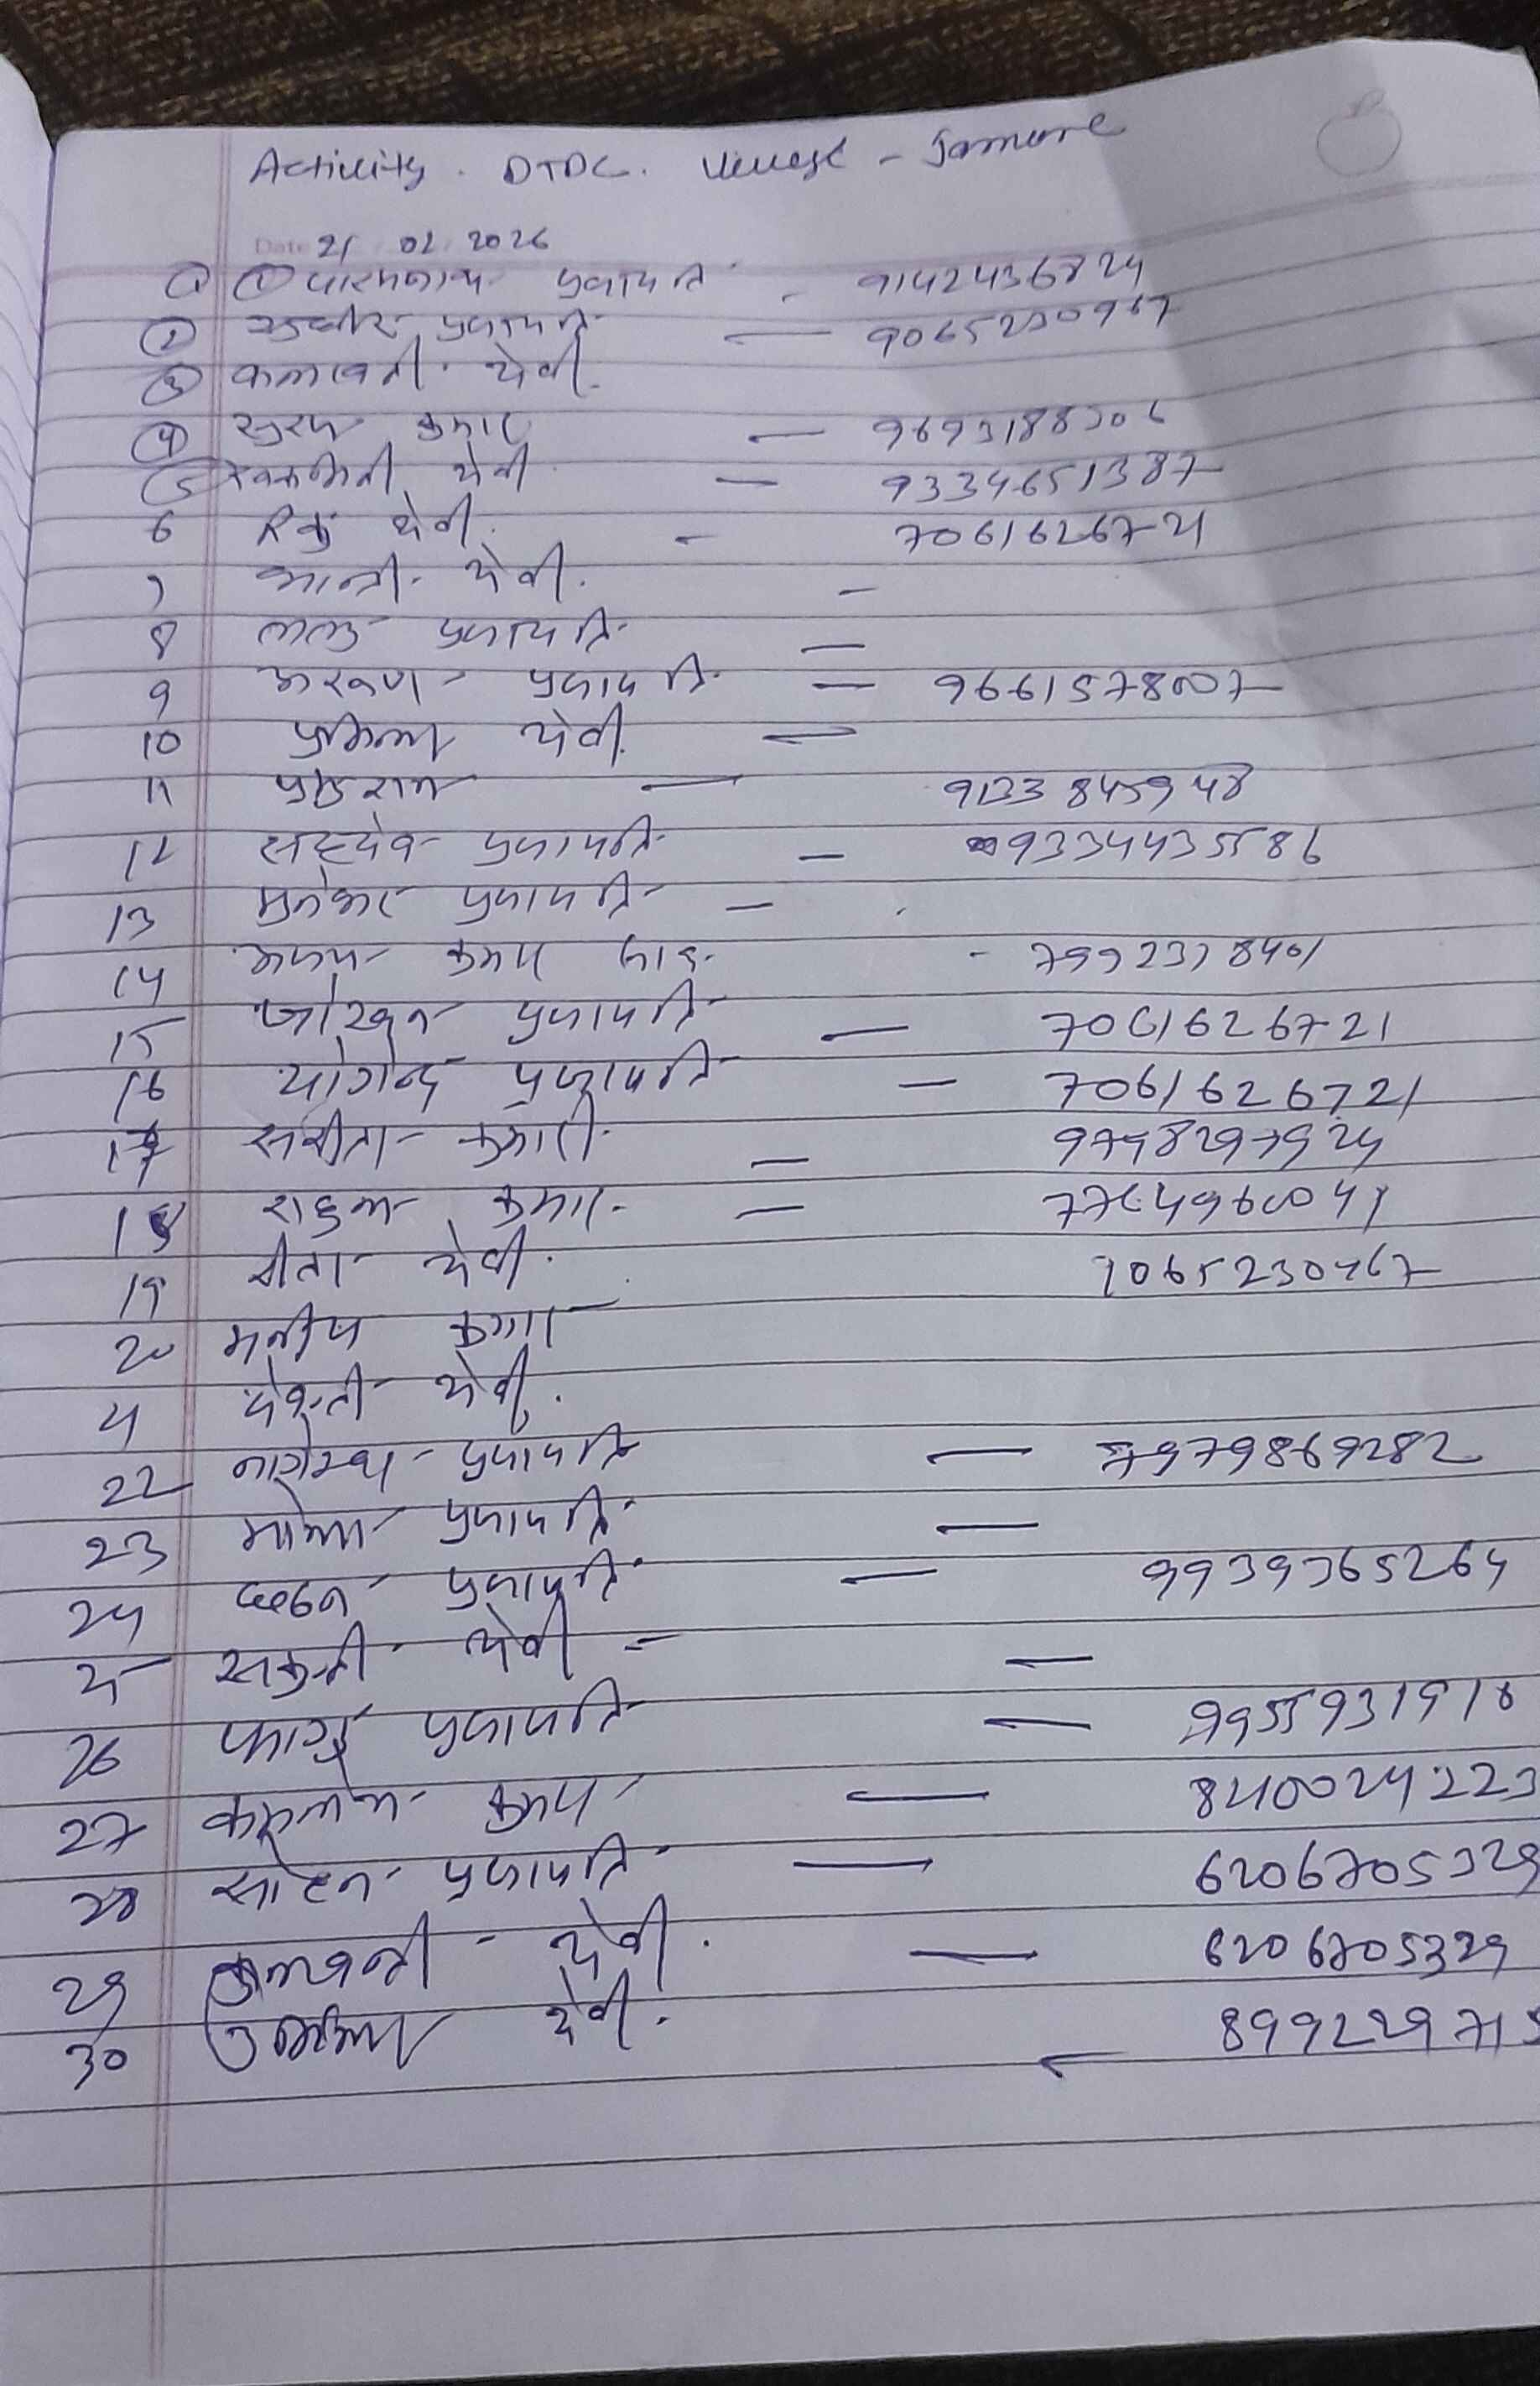 Activity. DTDC. - Jamune
Date 21 02 2026
① ① पारसनाथ प्रजापति - 9142436824
② प्रजापति — 9065230967
③ कलावती देवी
④ सुरज कुमार — 9693188306
5 देवी — 9334651387
6 देवी - 7061626721
7 शान्ती देवी. -
8 लालु प्रजापति —
9 अरूण प्रजापति = 9661578007
10 प्रमिला देवी. =
11 — 9133845948
12 सहदेव प्रजापति — 9334435586
13 मुनेशर प्रजापति —
14 अजय कुमार - 7992378401
15 जोखन प्रजापति — 7061626721
16 योगेन्द्र प्रजापति — 7061626721
17 सबीता कुमारी — 9798297924
18 राहुल कुमार — 7764960041
19 सीता देवी. 9065230967
20 मनीष कुमार
21 देवन्ती देवी.
22 प्रजापति — 7979869282
23 प्रजापति —
24 प्रजापति — 9939365264
25 देवी = —
26 फागु प्रजापति — 9955931918
27 कमलेश कुमार — 840024223
28 सोहन प्रजापति — 6206705329
29 देवी. — 6206705329
30 उर्मिला देवी. — 899229715